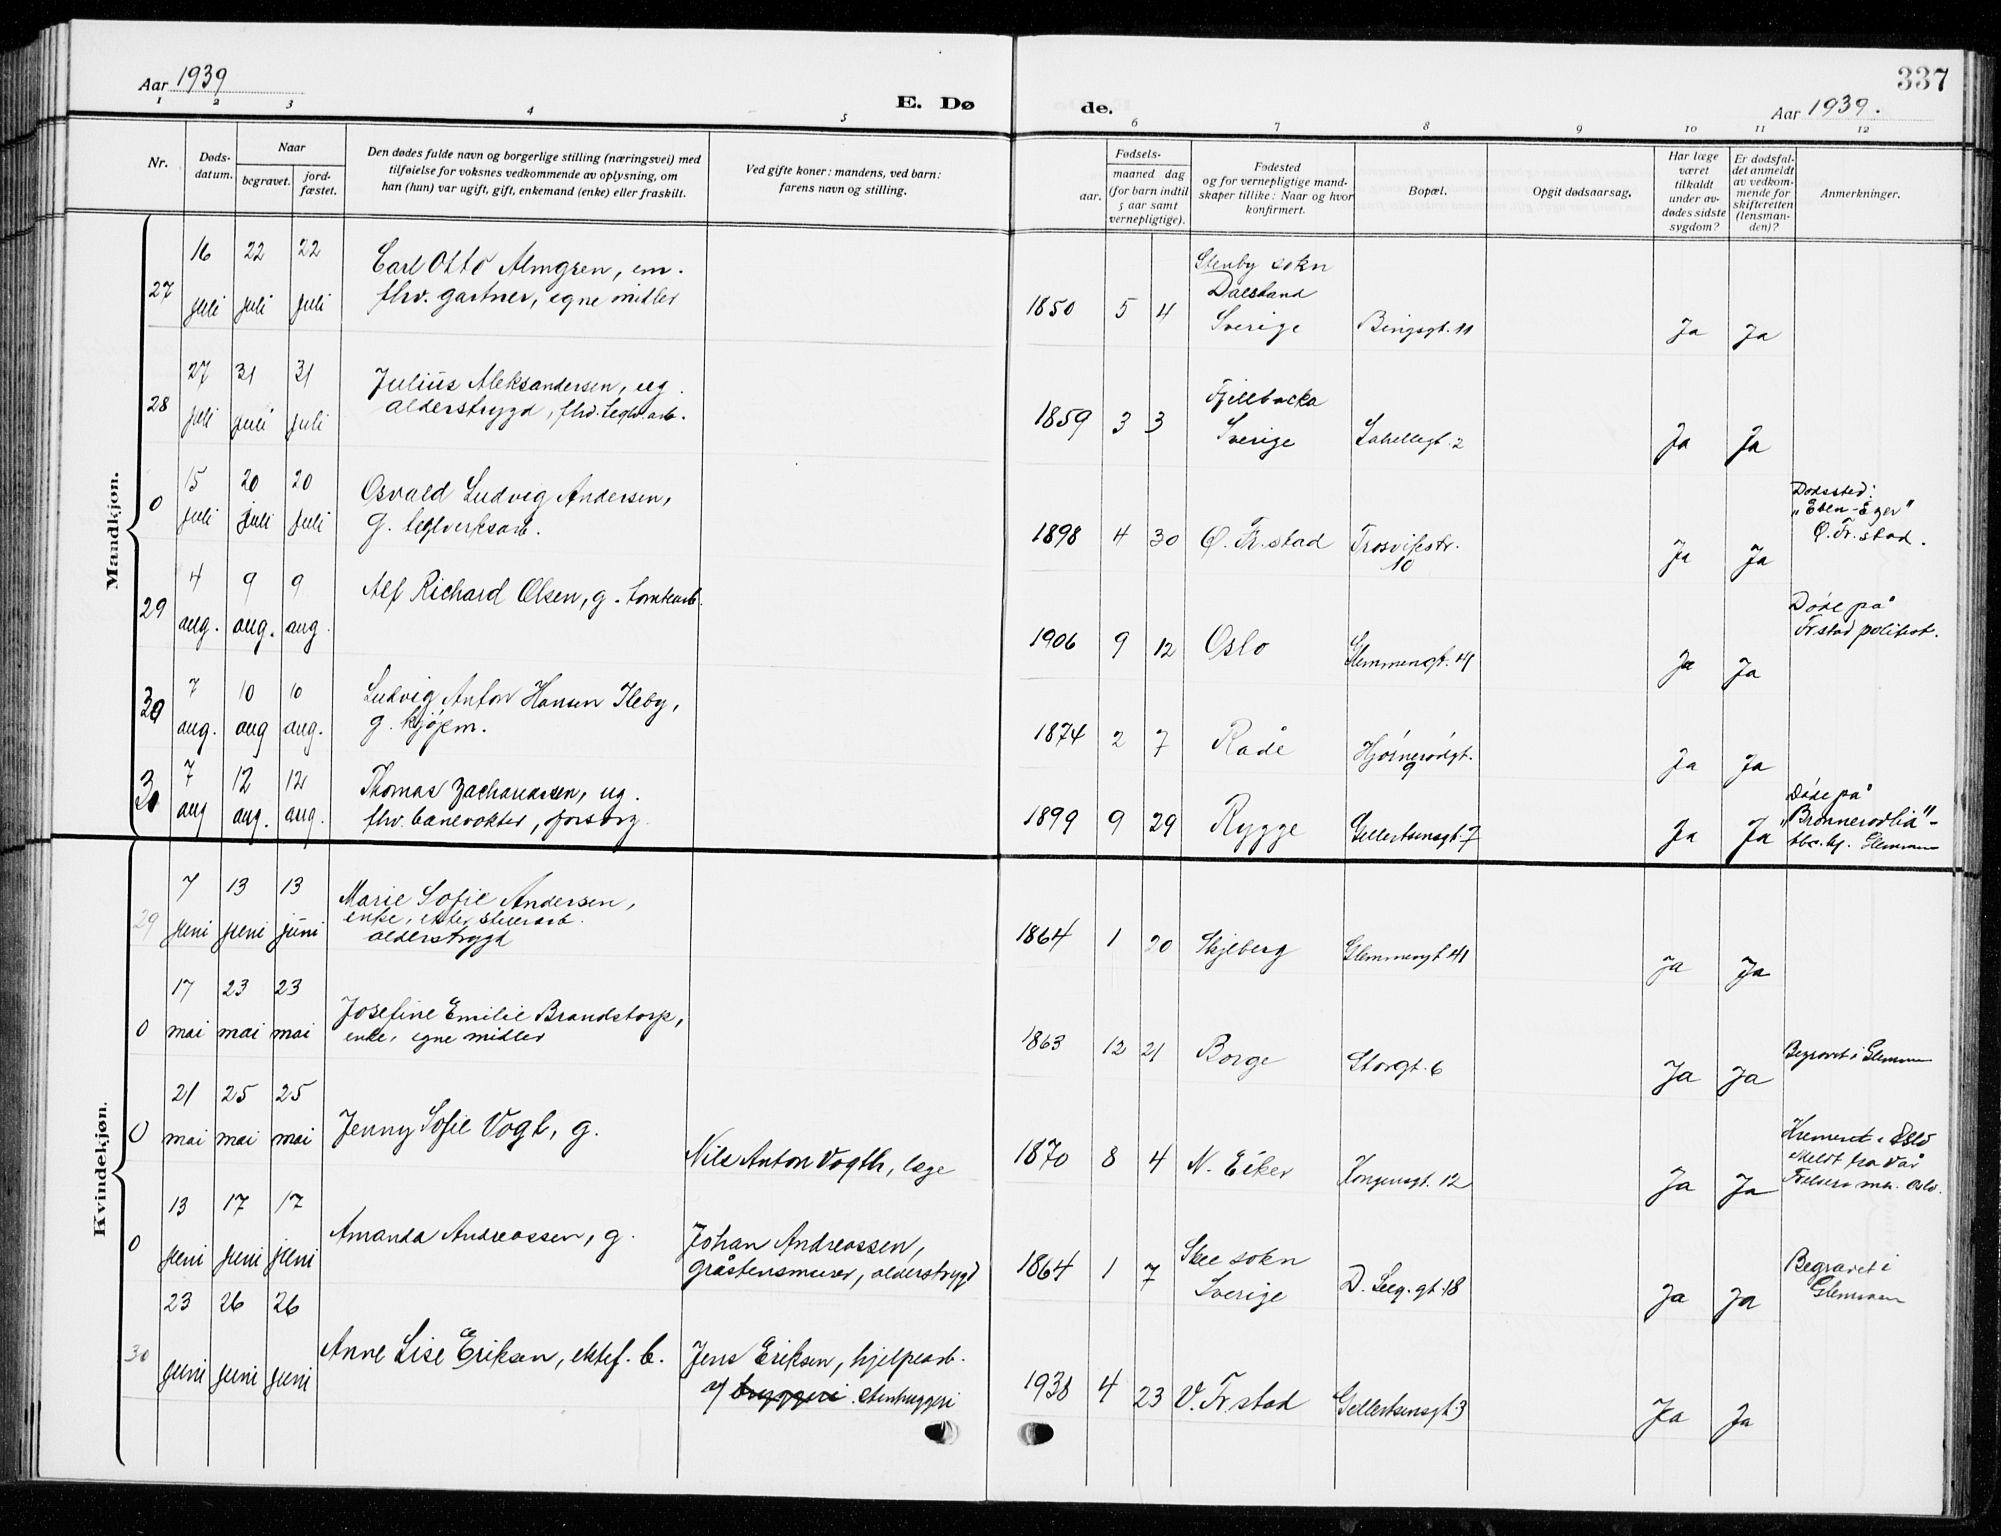 Aar 1939
E. Dø
de.
337
Aar 1939.
1 2 3 4 5 6 7 8 9 10 11 12
Nr.
Døds-
datum.
Naar
begravet.
jord-
fæstet.
Den dødes fulde navn og borgerlige stilling (næringsvei) med
tilføielse for voksnes vedkommende av oplysning, om
han (hun) var ugift, gift, enkemand (enke) eller fraskilt.
Ved gifte koner: mandens, ved barn:
farens navn og stilling.
Fødsels-
aar.
maaned dag
(for barn indtil
5 aar samt
vernepligtige).
Fødested
og for vernepligtige mand-
skaper tillike: Naar og hvor
konfirmert.
Bopæl.
Opgit dødsaarsag.
Har læge
været
tilkaldt
under av-
dødes sidste
sygdom?
Er dødsfal-
det anmeldt
av vedkom-
mende for
skifteretten
(lensman-
den)?
Anmerkninger.
Mandkjøn.
27
16 juli
22 juli
22 juli
Carl Otto Almgren, em.
fhv. gartner, egne midler
1850 5 4
Stenby sokn
Dalsland
Sverige
Bingsgt. 11
Ja Ja
28
27 juli
31 juli
31 juli
Julius Aleksandersen, ug.
alderstrygd, fhv. teglv.arb.
1859 3 3
Fjellbacka
Sverige
Ja Ja
0
15 juli
20 juli
20 juli
Osvald Ludvig Andersen,
g. teglverksarb.
1898 4 30
Ø. Fr.stad
Trosvikstr.
10
Ja Ja
Dødssted:
"Eben-Eser"
Ø. Fr.stad.
29
4 aug.
9 aug.
9 aug
Alf Richard Olsen, g. tomtearb.
1906 9 12
Oslo
Glemmengt. 41
Ja Ja
Døde på
Fr.stad politist.
30
7 aug.
10 aug
10 aug.
Ludvig Anton Hansen Ileby,
g. kjøpm.
1874 2 7
Råde
Hjørnerødgt.
9
Ja Ja
7 aug
12 aug.
12 aug.
Thomas Zachariassen, ug.
fhv. banevokter, forsørg.
1899 9 29
Rygge
Gellertsensgt. 7
Ja Ja
Døde på
"Brønnerødlia"-
tbc.hj. Glemmen
Kvindekjøn.
29
7 juni
13 juni
13 juni
Marie Sofie Andersen,
enke, efter stuerarb.
alderstrygd
1864 1 20
Skjeberg
Glemmengt. 41
Ja Ja
0
17 mai
23 mai
23 mai
Josefine Emilie Brandstorp,
enke, egne midler
1863 12 21
Borge
Storgt. 6
Ja Ja
Begravet i Glemmen
0
21 mai
25 mai
25 mai
Jenny Sofie Vogt, g.
Nils Anton Vogth, læge
1870 8 4
N. Eiker
Kongensgt. 12
Ja Ja
Kremeret i Oslo
Meldt fra Vår
Frelsers mn. Oslo.
0
13 juni
17 juni
17 juni
Amanda Andreassen, g.
Johan Andreassen,
gråstensmurer, alderstrygd
1864 1 7
Skee sokn
Sverige
D. Leeg. gt. 18
Ja Ja
Begravet i
Glemmen
30
23 juni
26 juni
26 juni
Anne Lise Eriksen, ektef. b.
Jens Eriksen, hjelpearb.
v/ bryggeri stenhuggeri
1938 4 23
V. Fr.stad
Gellertsensgt. 3
Ja Ja